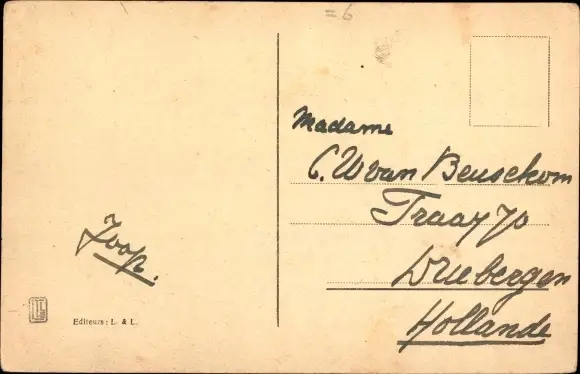 = 6
Madame
C. W van Beusekom
Traay 70
Driebergen
Hollande
Joop.
Editeurs: L. & L.